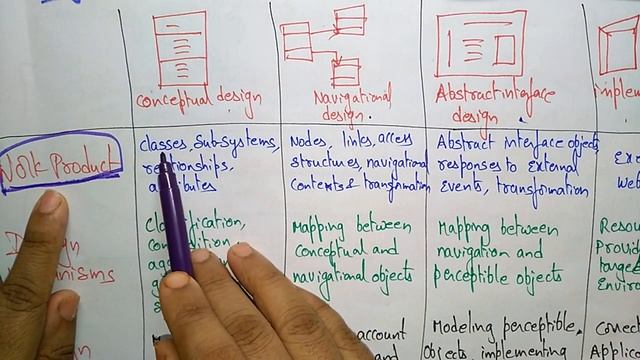 conceptual design
Navigational
design.
Abstract interface
design
implem
Work Product
classes, Sub-Systems,
relationships,
attributes
Nodes, links, access
structures, navigational
Contexts & transformation
Abstract interface objects,
responses to External
Events, transformation
Exe
web
Design
Classification,
Mapping between
conceptual and
navigational objects
Mapping between
navigation and
perceptible objects
Resou
Provid
target
Enviro
account
and
Modeling perceptible
Objects, implementing
Applica